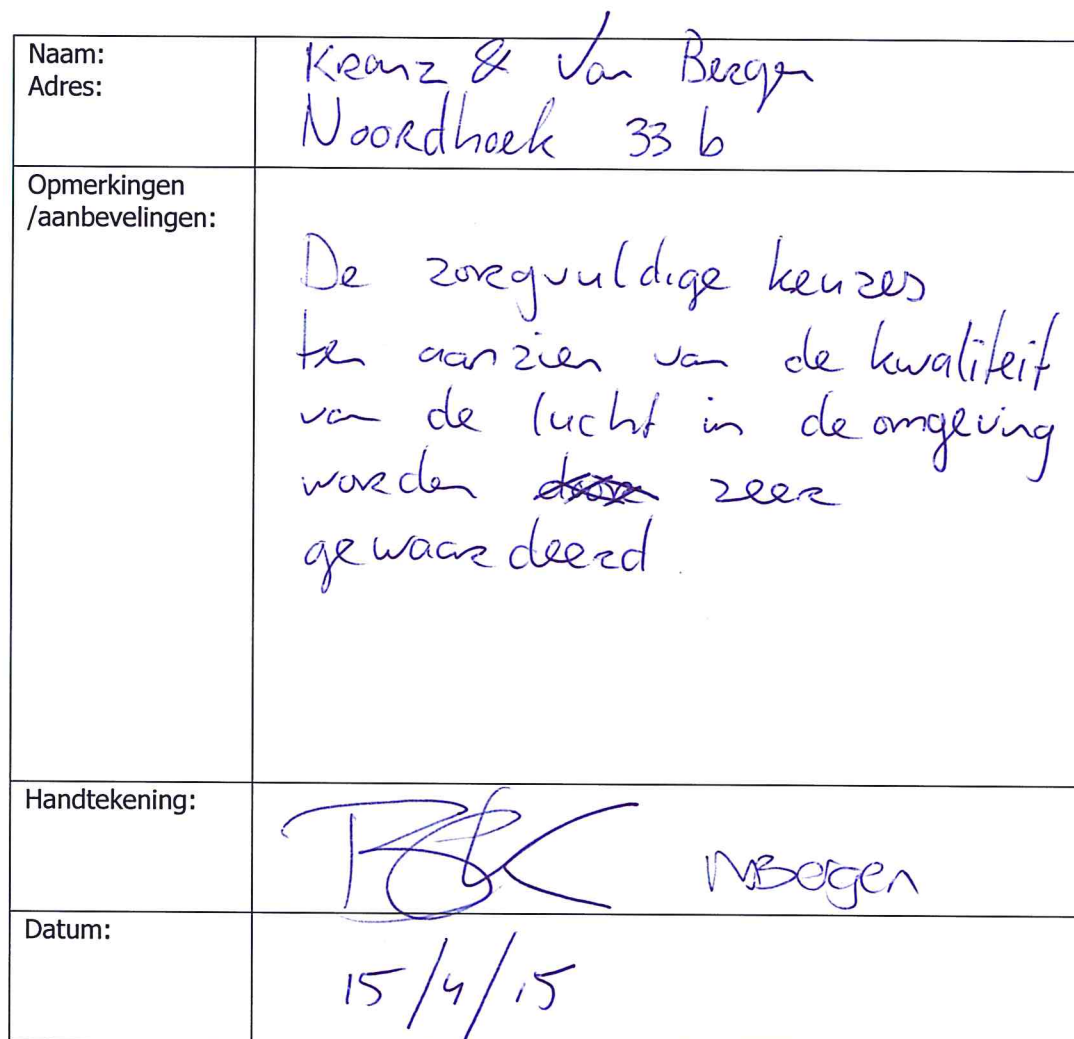 Naam:
Adres:
Kranz & Van Bergen
Noordhoek 33 b
Opmerkingen
/aanbevelingen:
De zorgvuldige keuzes
ten aanzien van de kwaliteit
van de lucht in de omgeving
worden zeer
gewaardeerd
Handtekening:
Datum:
15/4/15